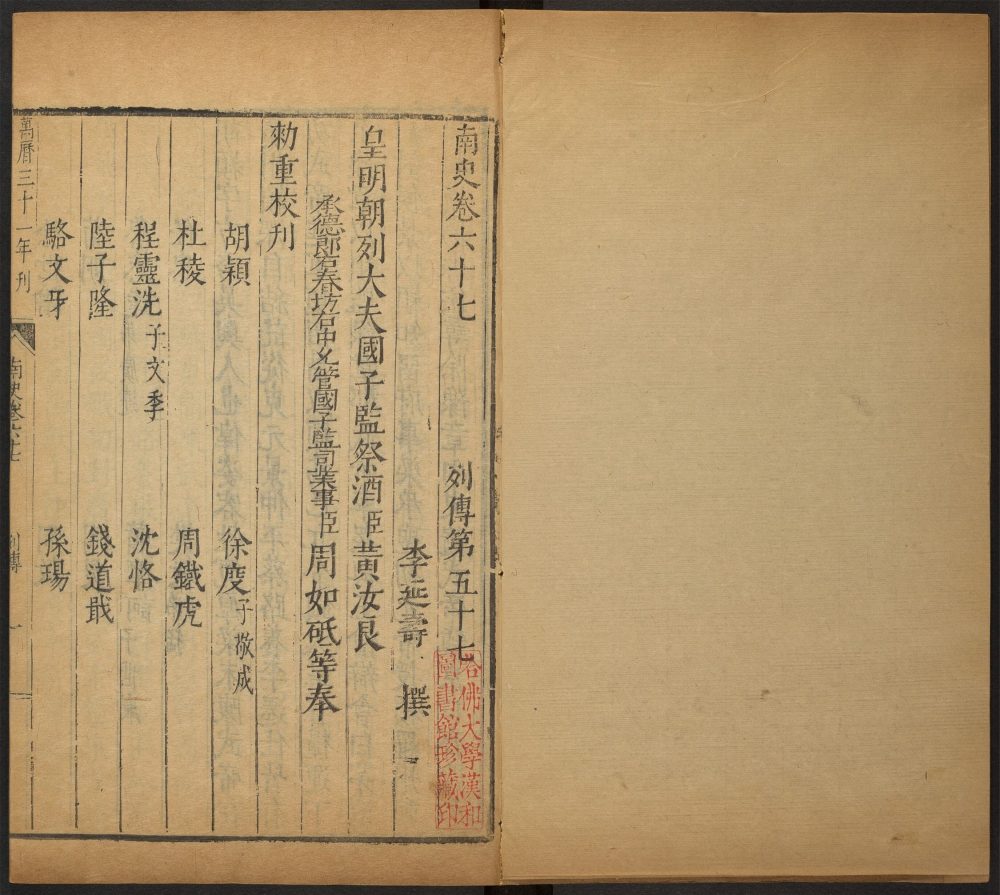 南史卷六十七 列傳第五十七
李延壽 撰
皇明朝列大夫國子監祭酒臣黃汝良
承德郎右春坊右中允管國子監司業事臣周如砥等奉
勑重校刊
胡穎 徐度子敬成
杜稜 周鐵虎
程靈洗子文季 沈恪
陸子隆 錢道戢
駱文牙 孫瑒
萬曆三十一年刊
南史卷六十七
列傳 一
哈佛大學漢和
圖書館珍藏印